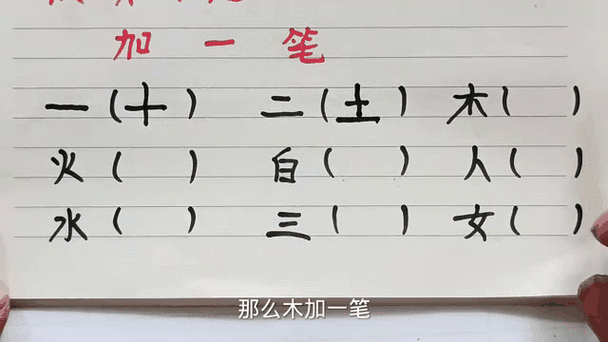 加一笔
一（十） 二（土） 木（ ）
火（ ） 白（ ） 人（ ）
水（ ） 三（ ） 女（ ）
那么木加一笔